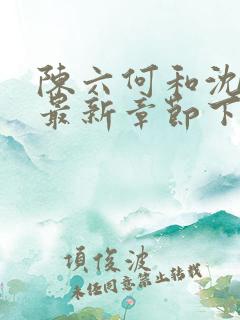 陳六何和沈
最新章節下
項俊波
未经同意禁止转载